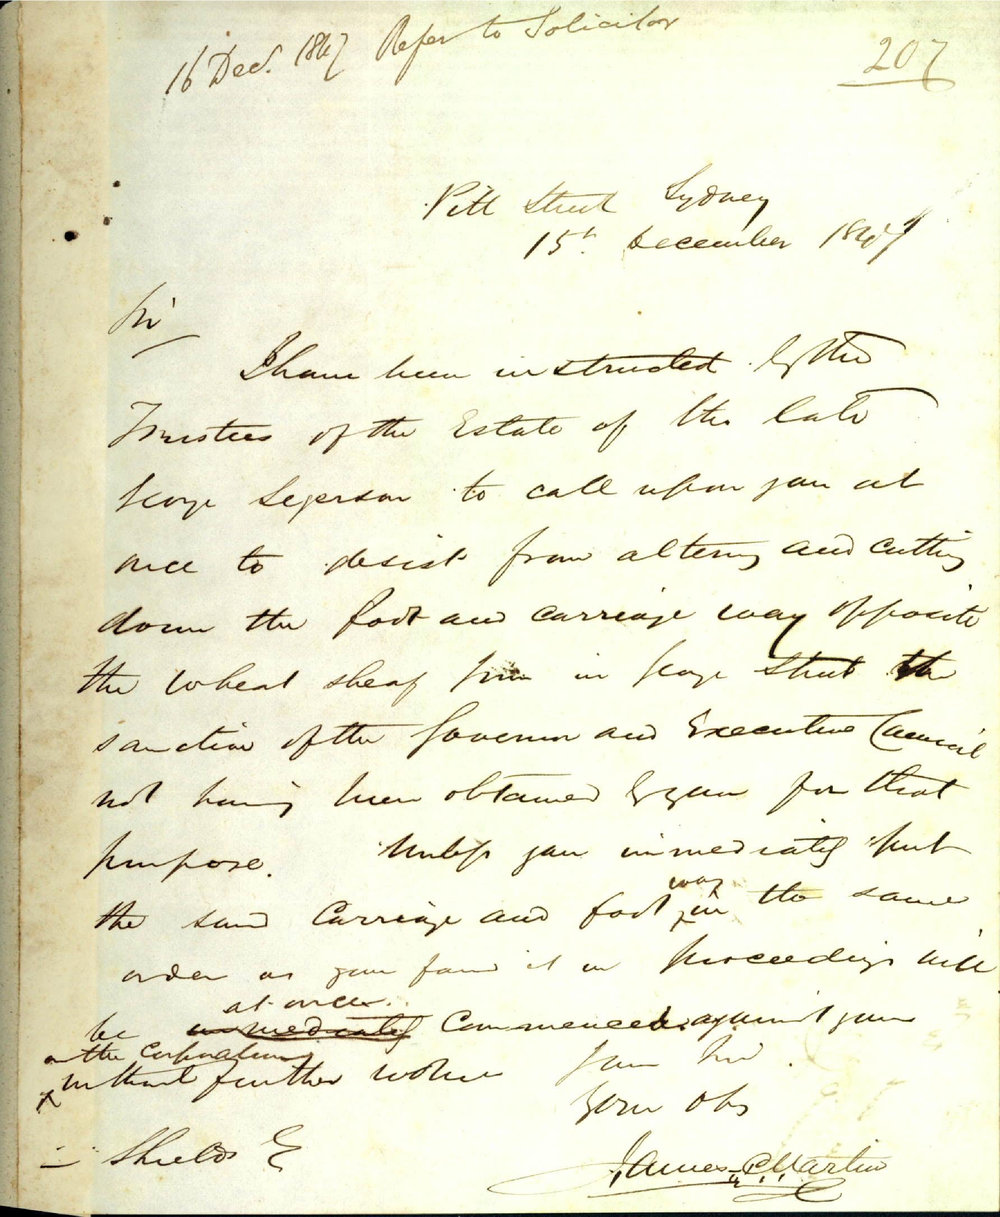 16 Dec. 1847 Refer to Solicitor
207
Pitt Street Sydney
15th December 1847
Sir
I have been instructed by the
Trustees of the Estate of the late
George Segerson to call upon you at
once to desist from altering and cutting
down the foot and carriage way opposite
the Wheat sheaf Inn in George Street the
sanction of the Governor and Executive Council
not having been obtained by you for that
purpose. Unless you immediately put
way
the said Carriage and foot in the same
order as you found it in proceedings will
at once
be immediately Commenced against you
or the Corporation
without further notice
I am Sir
Your Obs
James Martin
— Shields E